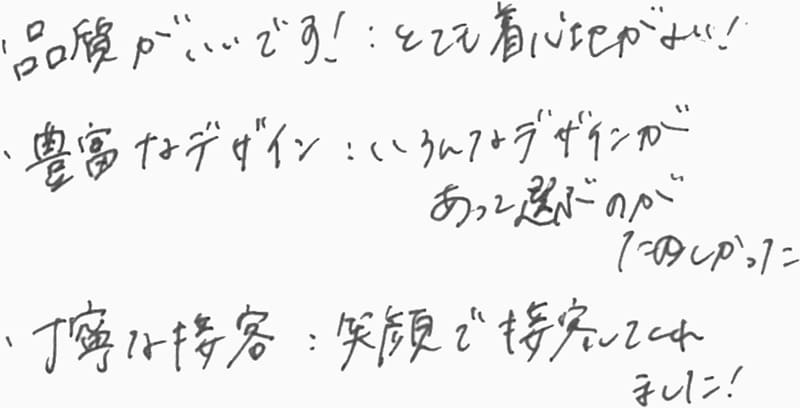 ・品質がいいです！：とても着心地がよい！
・豊富なデザイン：いろんなデザインが
あって選ぶのが
たのしかった
・丁寧な接客：笑顔で接客してくれ
ました！